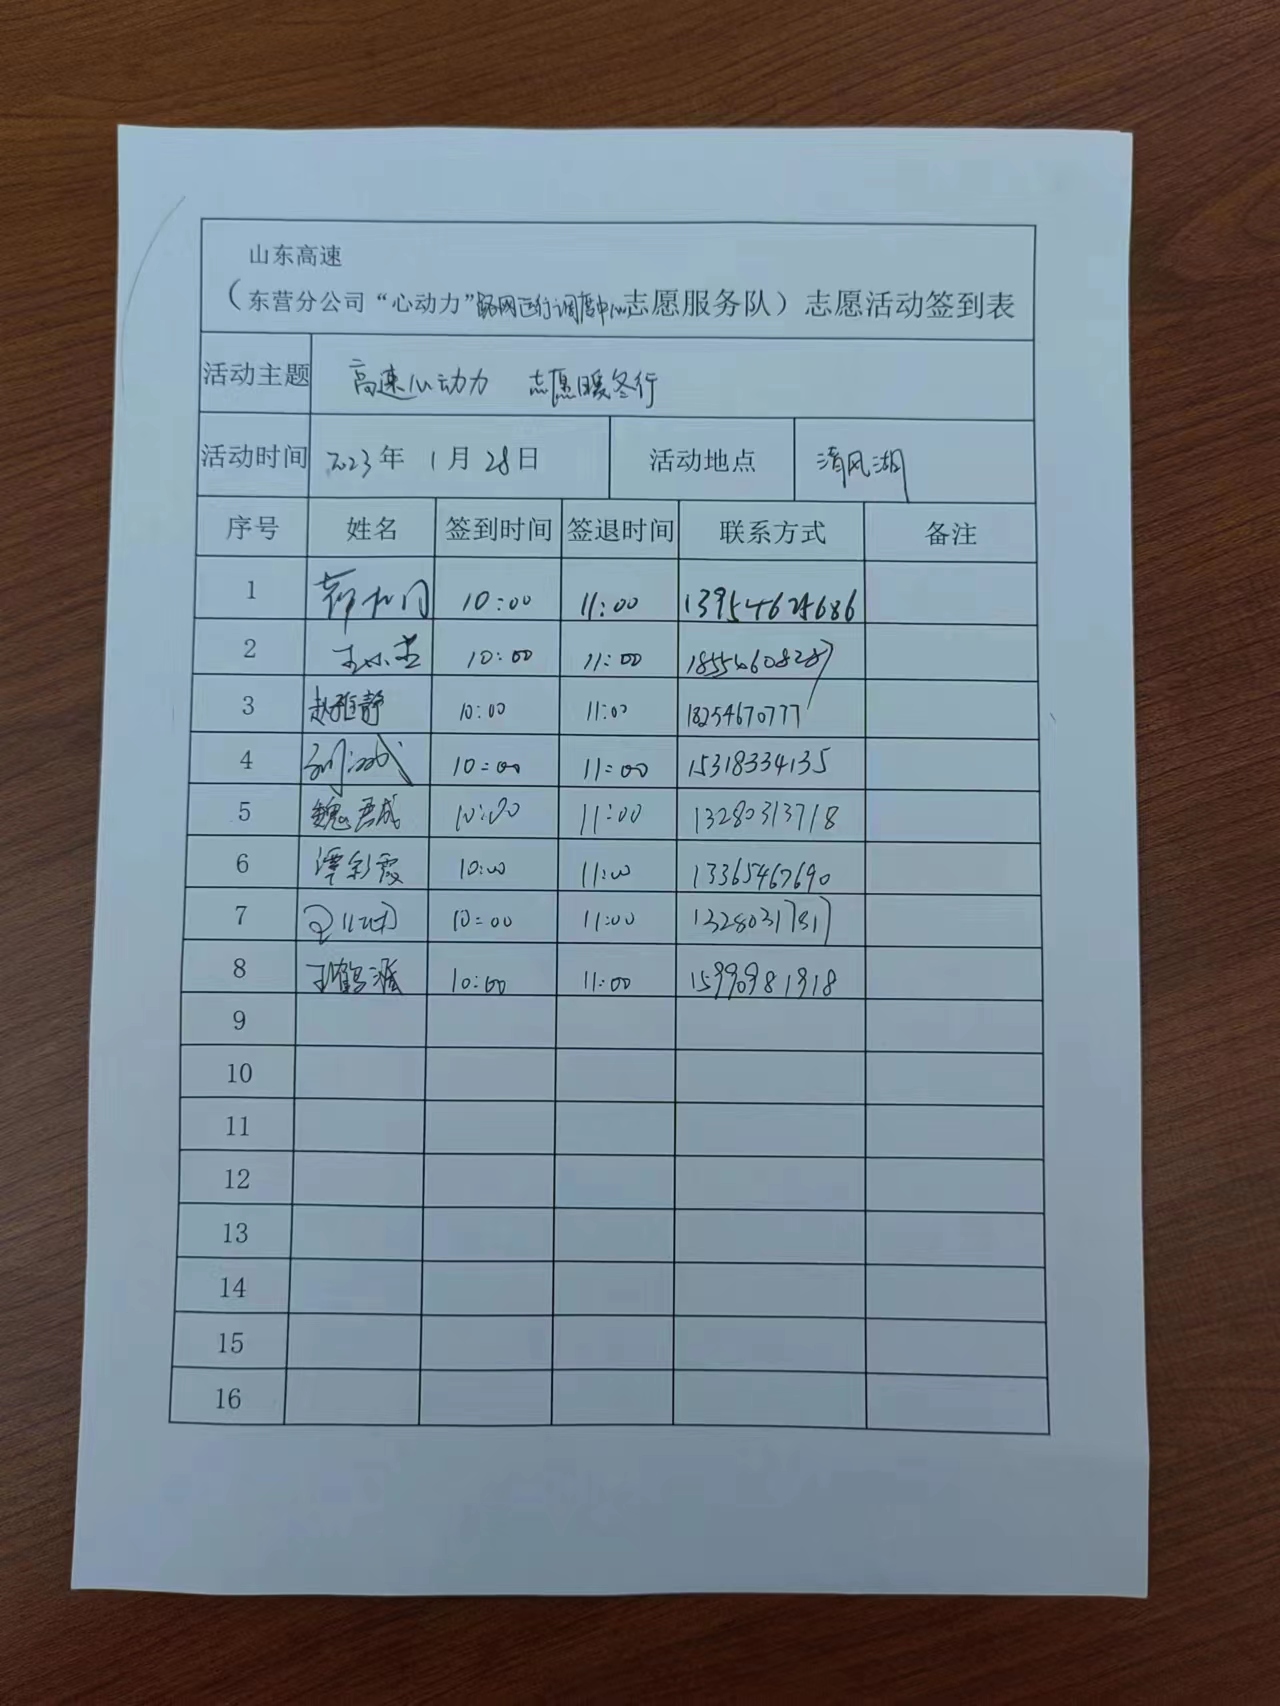 山东高速
（东营分公司“心动力”路网运行调度中心志愿服务队）志愿活动签到表
活动主题 高速心动力 志愿暖冬行
活动时间 2023年 1月28日 活动地点 清风湖
序号 姓名 签到时间 签退时间 联系方式 备注
1 10:00 11:00
2 10:00 11:00 18554608287
3 赵雅静 10:00 11:00 18254670777
4 10:00 11:00 15318334135
5 魏君成 10:00 11:00 13280313718
6 谭彩霞 10:00 11:00 13365467690
7 10:00 11:00 13280317817
8 王鹤 10:00 11:00 15990981918
9
10
11
12
13
14
15
16